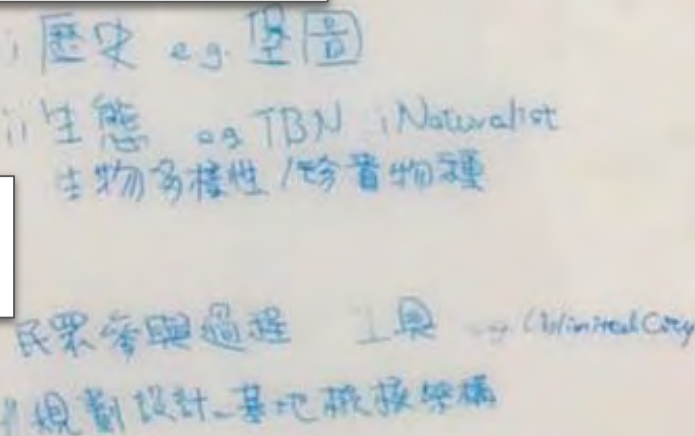 i 歷史 e.g. 堡圖
ii 生態 eg TBN iNaturalist
生物多樣性/珍貴物種
民眾參與過程 工具 → Unlimited City
規劃設計-基地